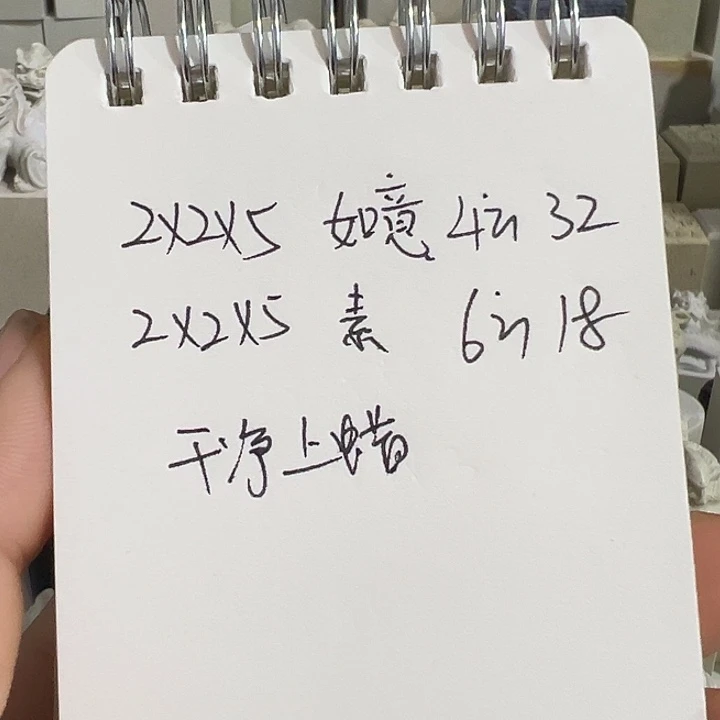 2X2X5 如意 4过 32
2X2X5 素 6过 18
干净上蜡